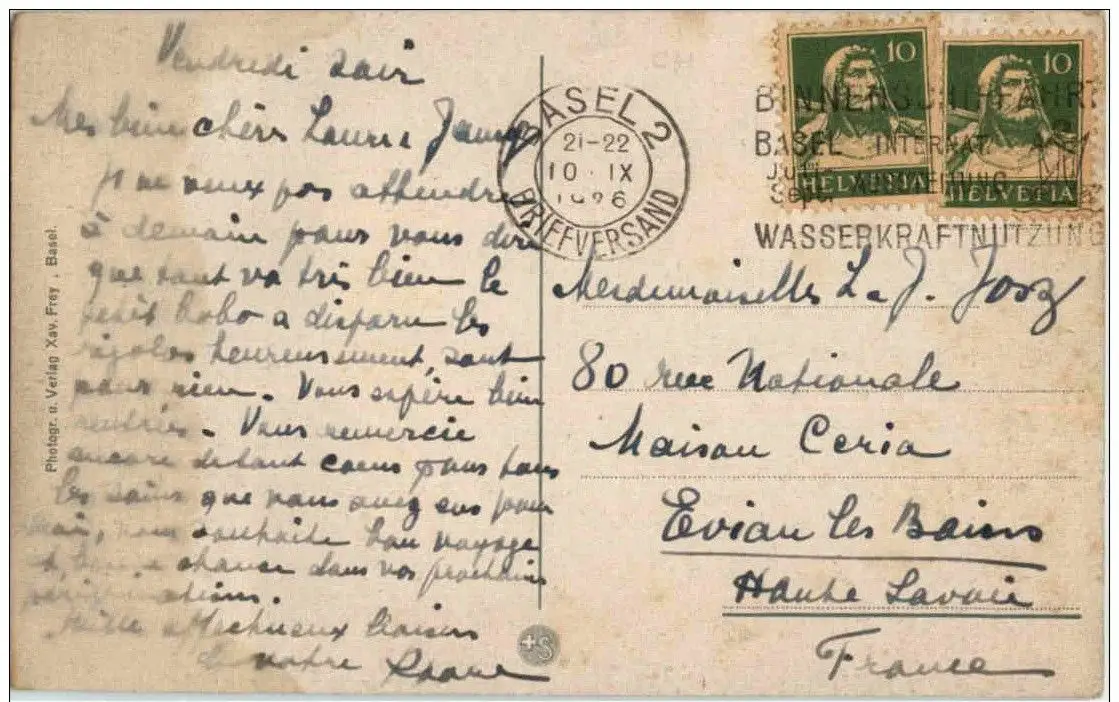 Vendredi soir
Mes bien chères Laure &
je ne veux pas attendre
à demain pour vous dire
que tout va très bien le
petit bobo a disparu les
heureusement, sont
pour rien. Vous espère bien
rentrées. Vous remercie
encore de tout coeur pour tous
les soins que vous avez eus pour
moi, vous souhaite bon voyage
et bonne chance dans vos prochains
pérégrinations.
Mille affectueux baisers
de votre
Photogr. u. Verlag Xav. Frey, Basel.
+S
BASEL 2
21-22
10. IX
1926
BRIEFVERSAND
10
HELVETIA
10
HELVETIA
BINNENSCHIFFAHRT
BASEL INTERNAT.
AUSSTELLUNG
WASSERKRAFTNUTZUNG
Mesdemoiselles L. J.
80 rue Nationale
Maison Ceria
Evian les Bains
Haute Savoie
France